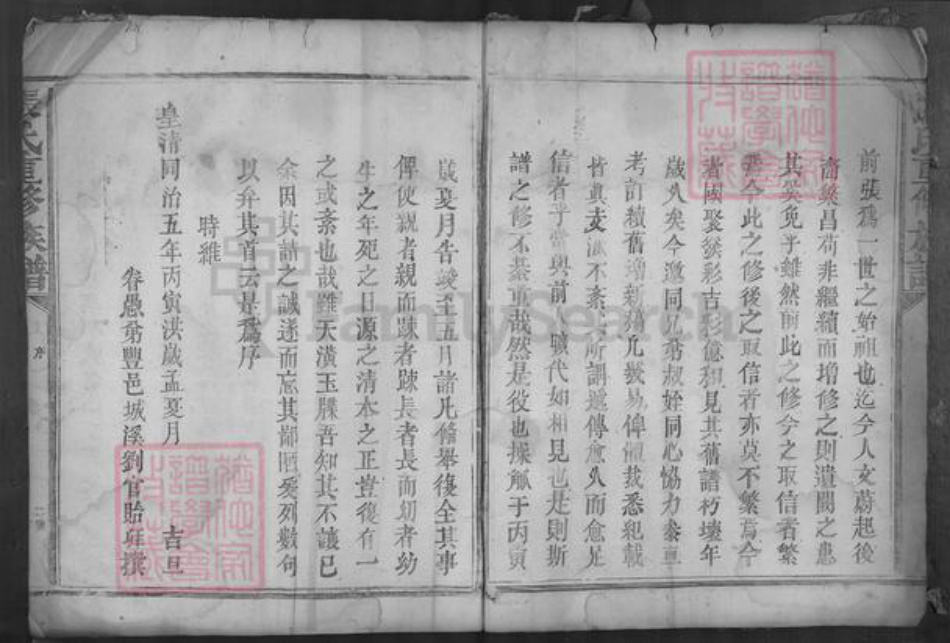 前張爲一世之始祖也迄今人文蔚起後
裔繁昌苟非繼續而增修之則遺闕之患
其奚免乎雖然前此之修今之取信者繁
乎今此之修後之取信者亦莫不繁焉今
者國聚發彩吉彩億和見其舊譜朽壞年
歲久矣今邀同兄弟叔姪同心協力泰重
考訂續舊增新為凡發易俾傾裁悉紀載
皆真支派不紊其所謂遞傳愈久而愈足
信者乎當與前曠代如相見也是則斯
譜之修不綦重哉然是役也操觚于丙寅
歲夏月告竣至五月諸凡修舉復全其事
俾使親者親而疎者疎長者長而幼者幼
生之年死之日源之清本之正豈復有一
之或紊也哉雖天潢玉牒吾知其不讓已
余因其請之誠遂而忘其鄙陋爰列數句
以弁其首云是爲序
時維
皇清同治五年丙寅洪歲孟夏月 吉旦
眷愚弟豐邑城溪劉官貽庭撰
張氏重修族譜
序
FamilySearch